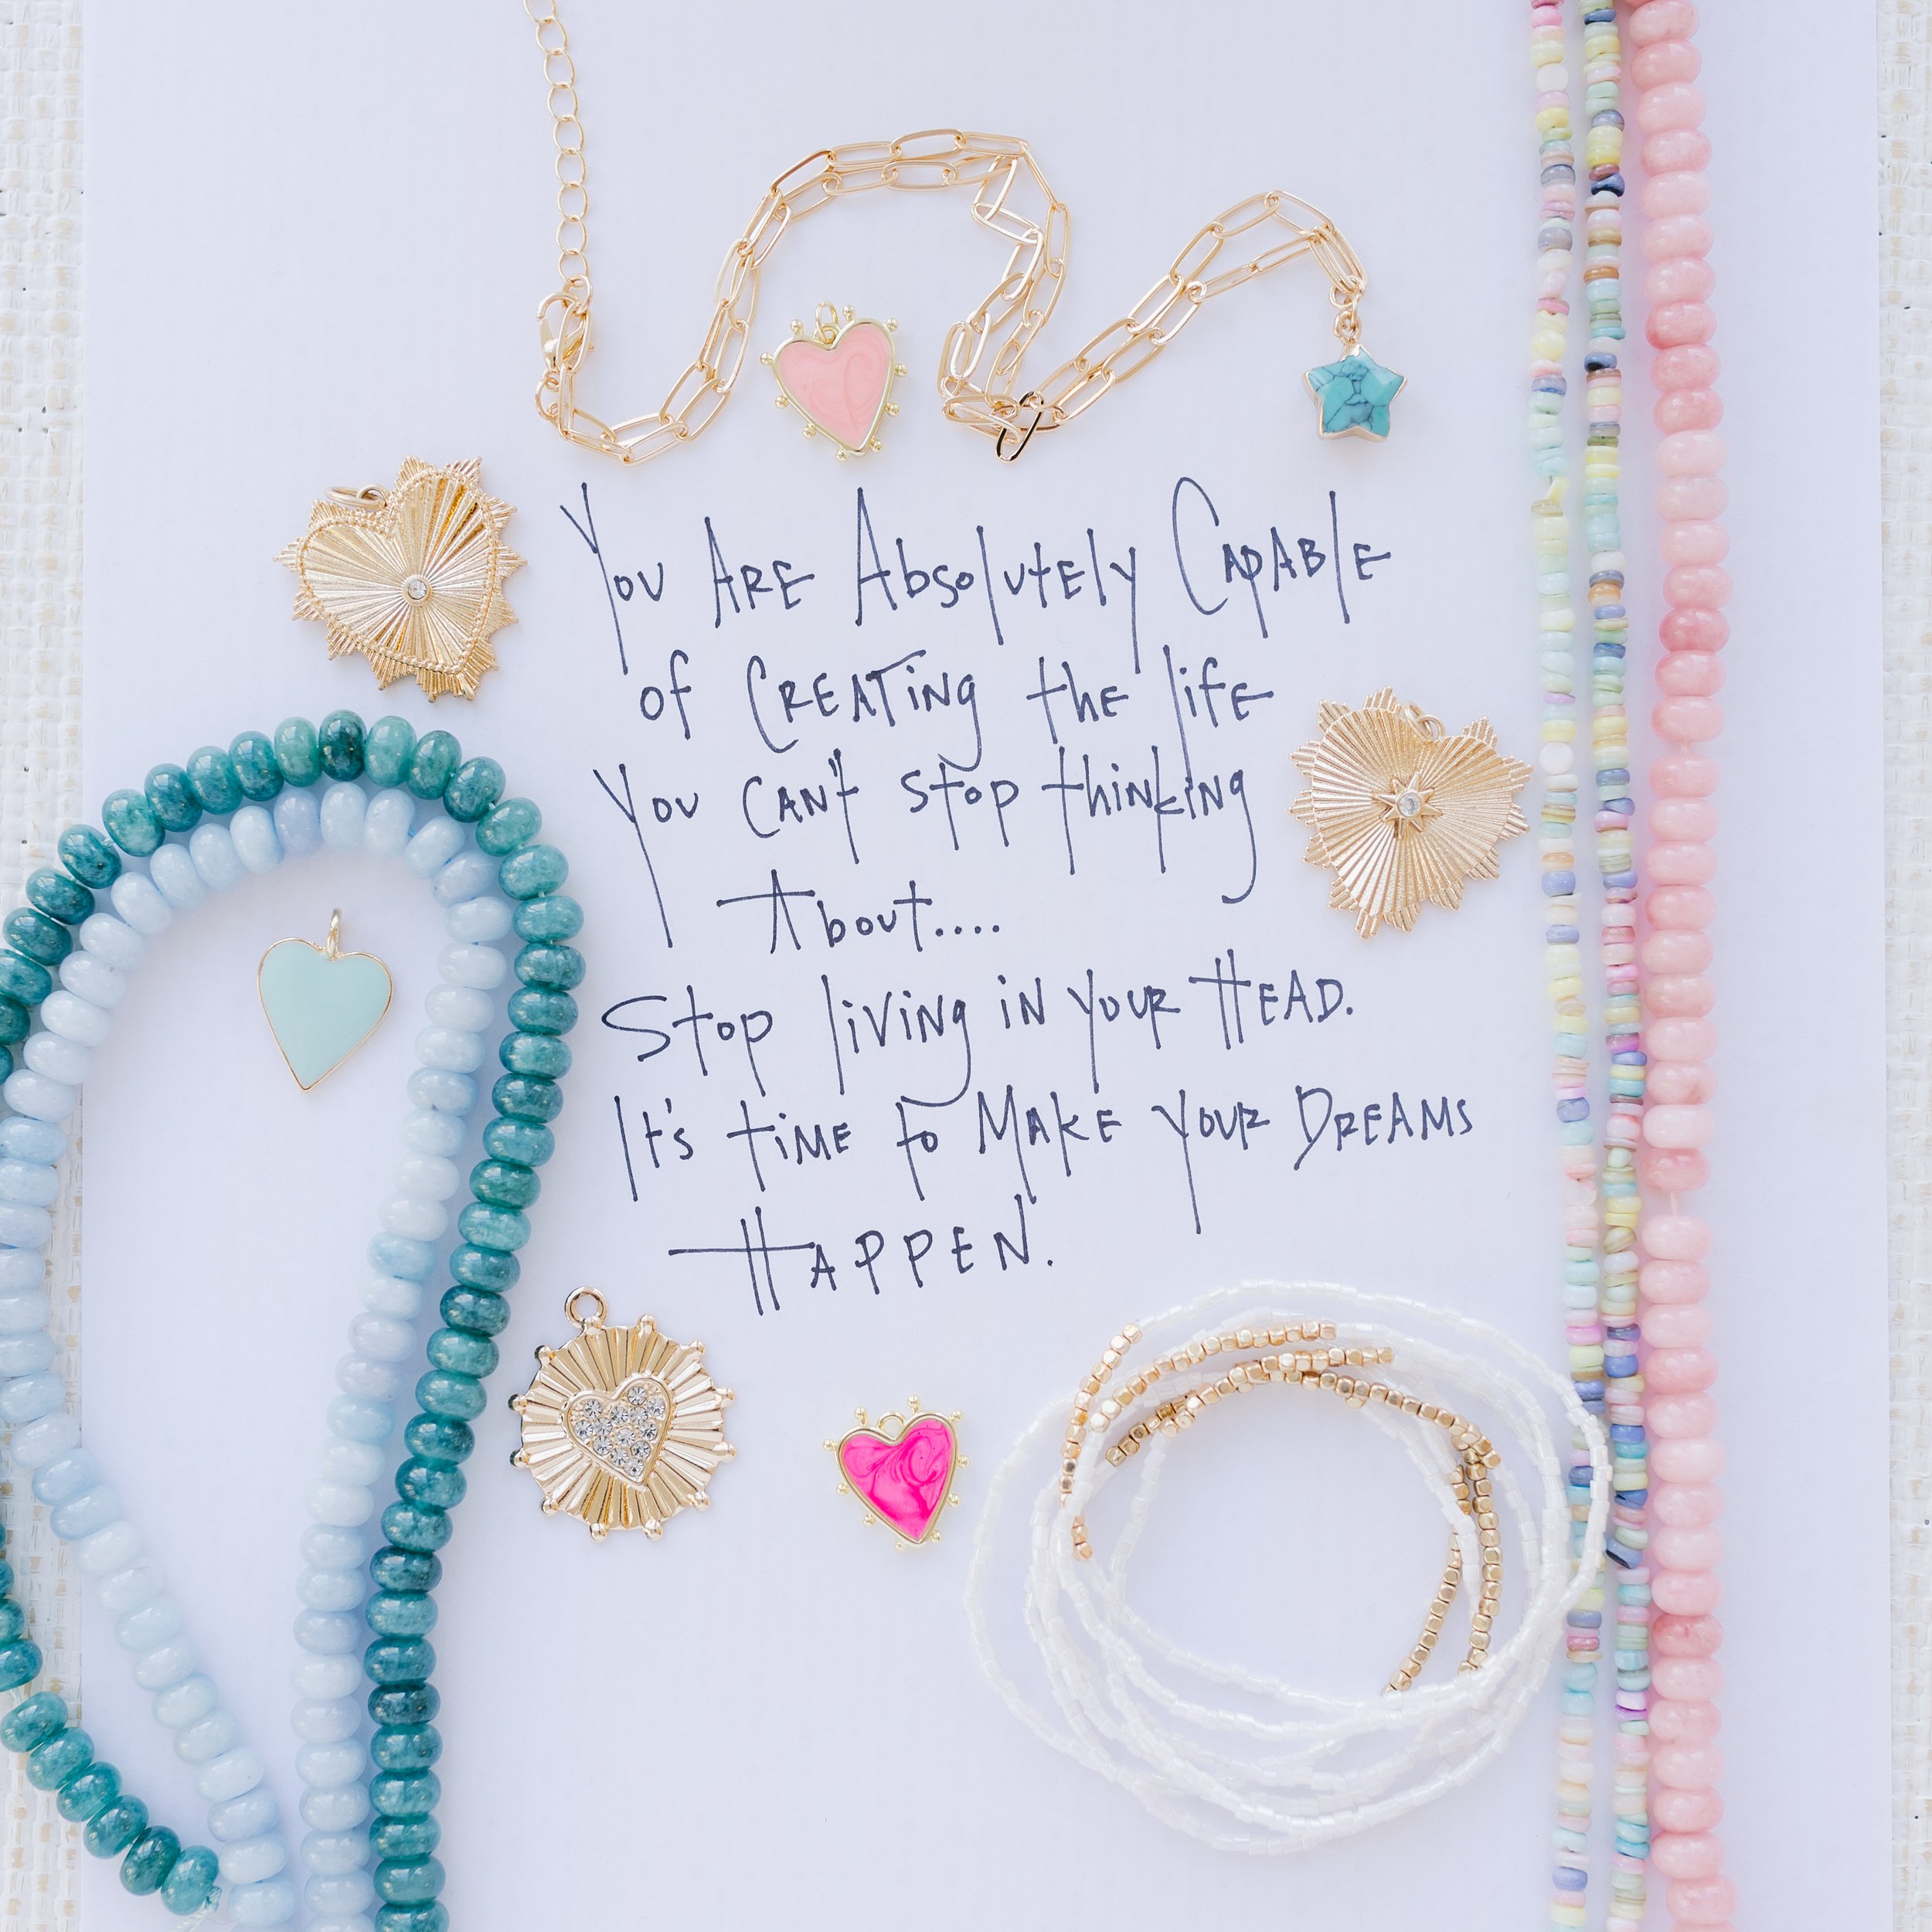 You Are Absolutely Capable
of Creating the life
You can't stop thinking
About....
Stop living in your Head.
It's time to Make your Dreams
Happen.